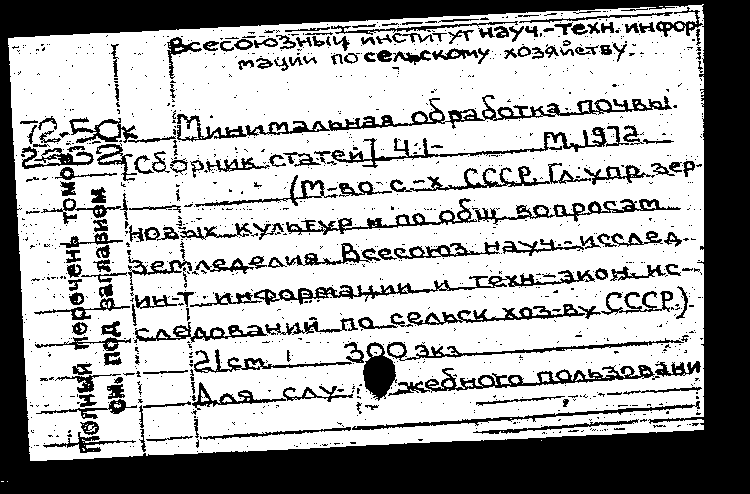 Всесоюзный институт науч.-техн. инфор
мации по сельскому хозяйству.
Минимальная обработка почвы.
[Сборник статей]. Ч.1- М., 1972.
(М-во с.-х. СССР. Гл. упр. зер-
новых культур и по общ. вопросам
земледелия. Всесоюз. науч.-исслед.
ин-т информации и техн.-экон. ис-
следований по сельск. хоз-ву СССР.)
21 см. 300 экз.
Для служебного пользовани
Полный перечень томов
см. под заглавием